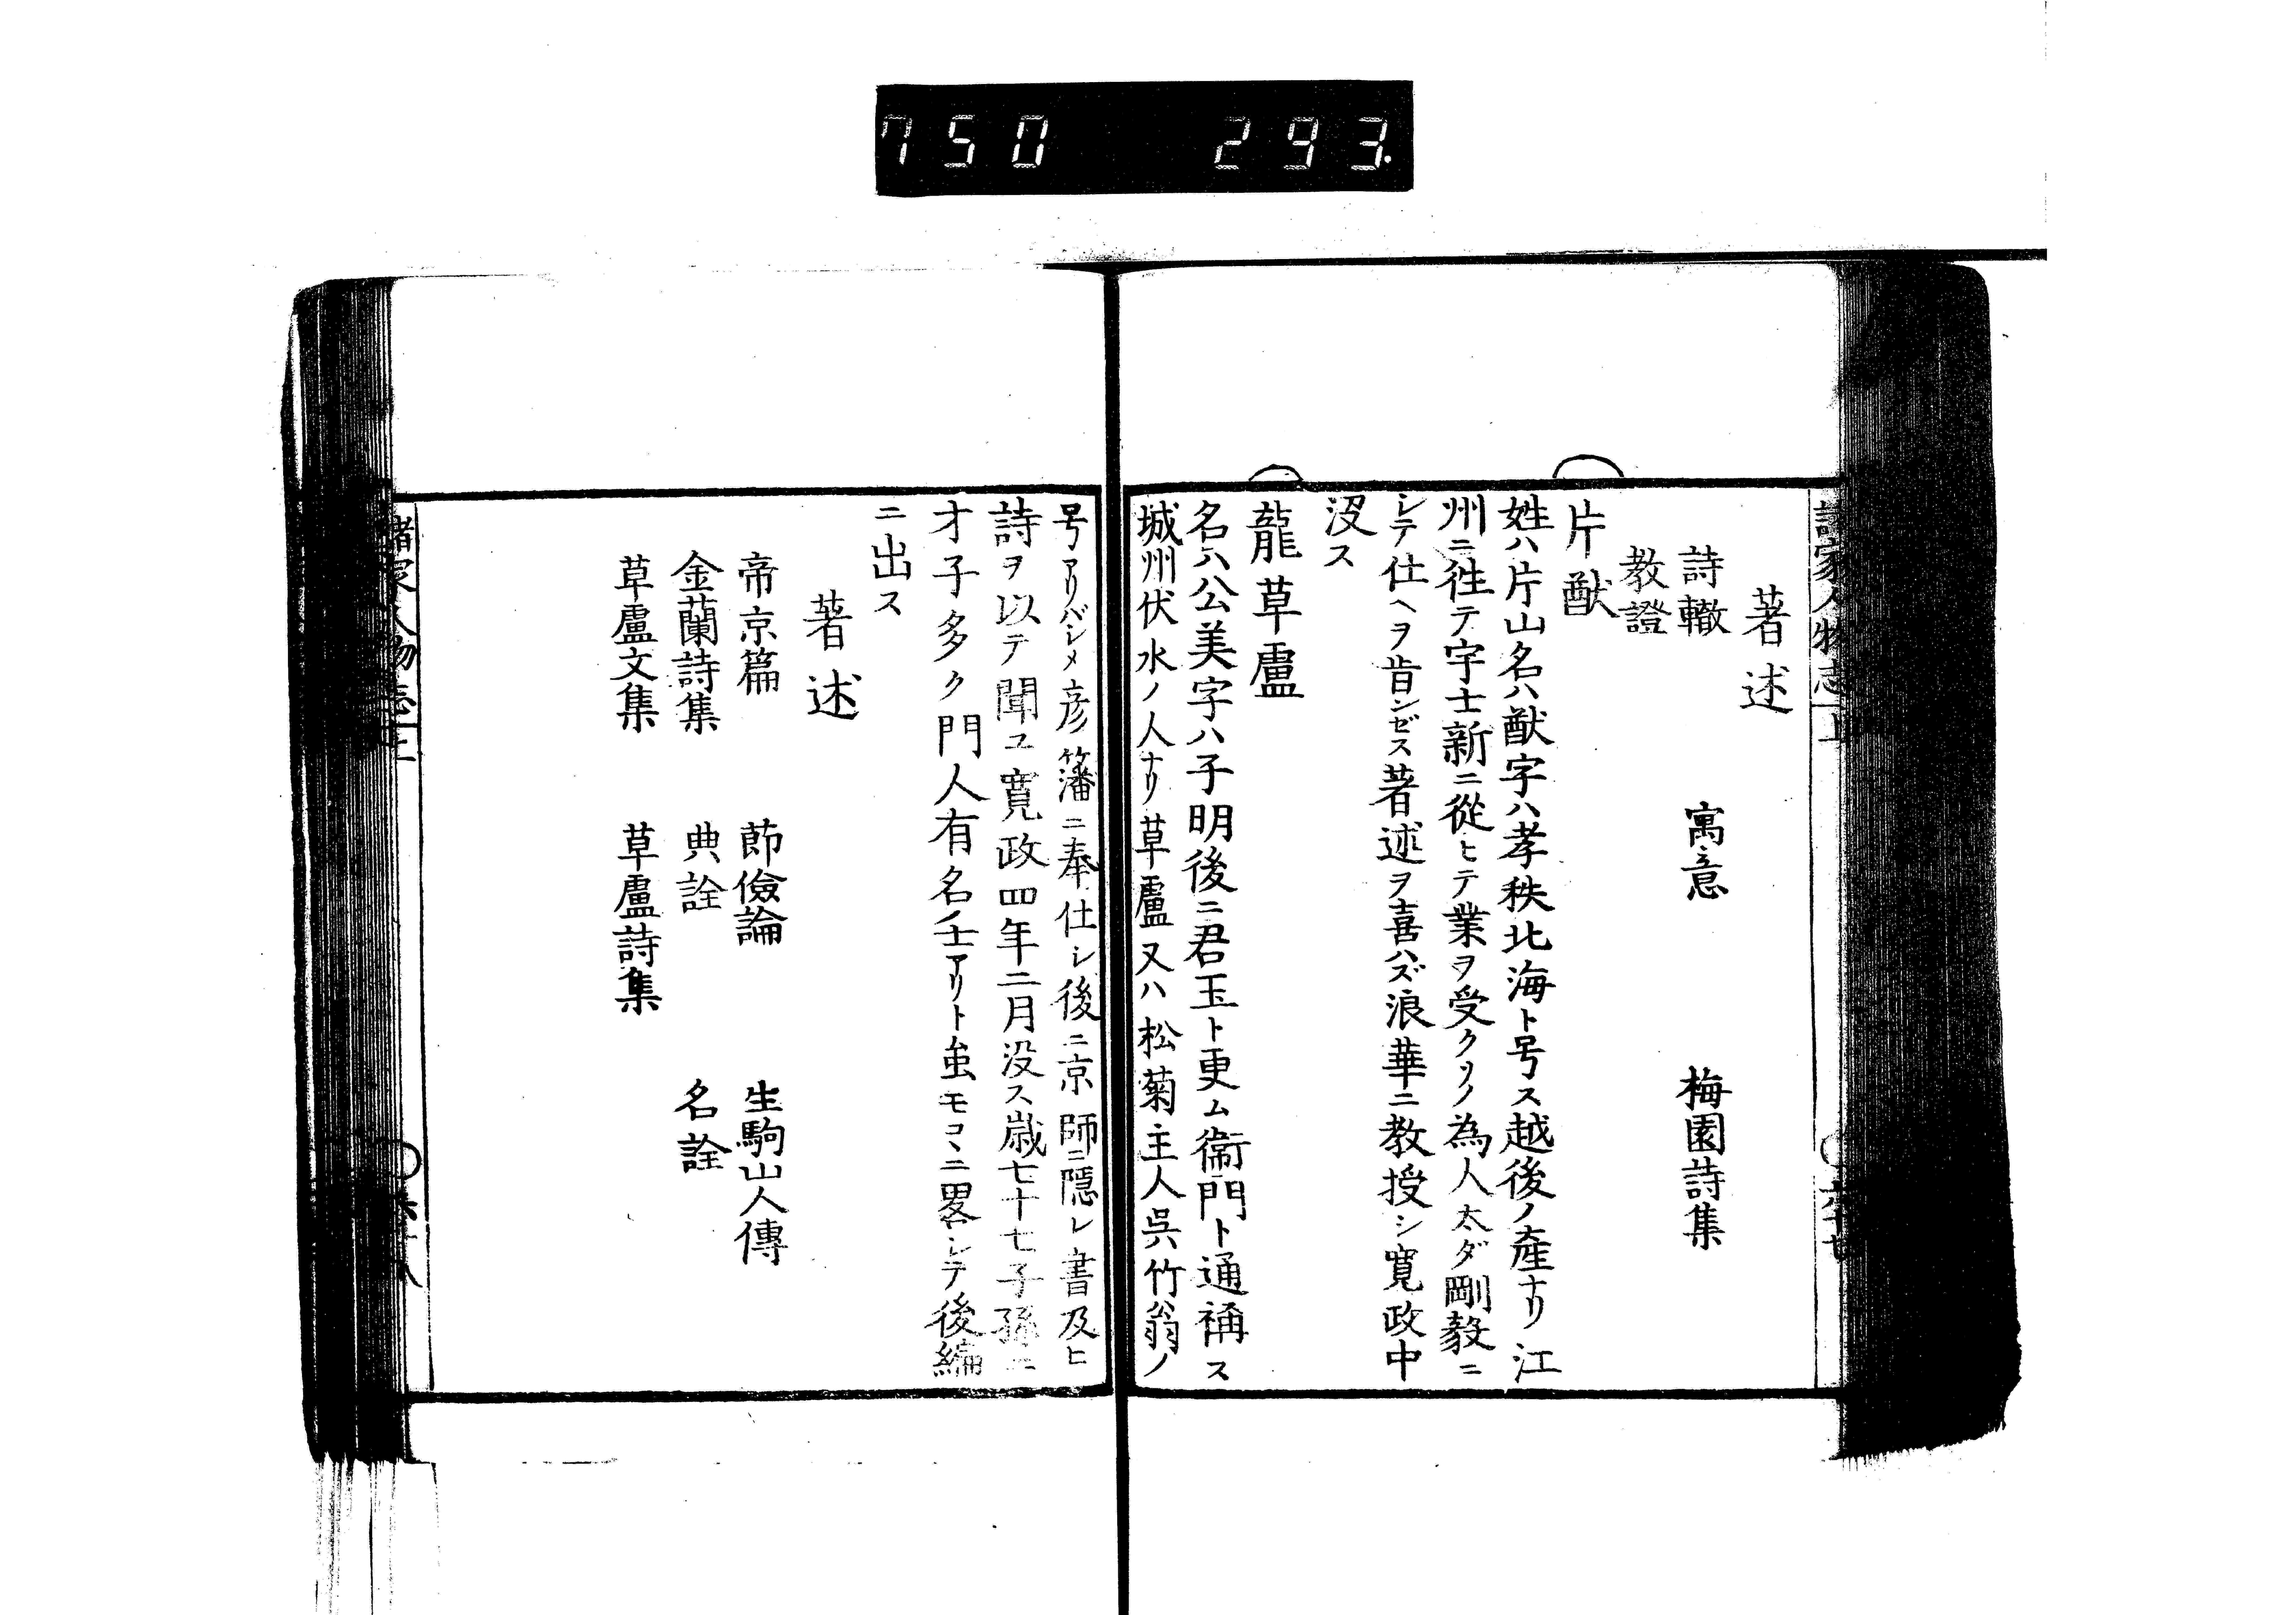 750 293.
諸家人物志上
著述
詩轍 寓意 梅園詩集
教證
片猷
姓ハ片山名ハ猷字ハ孝秩北海ト号ス越後ノ産ナリ江
州ニ徃テ宇士新ニ從ヒテ業ヲ受クソノ為人太ダ剛毅ニ
シテ仕ヘヲ肯ンゼス著述ヲ喜ハズ浪華ニ教授シ寛政中
沒ス
龍草盧
名ハ公美字ハ子明後ニ君玉ト更ム衞門ト通稱ス
城州伏水ノ人ナリ草盧又ハ松菊主人呉竹翁ノ
号アリハジメ彦籓ニ奉仕シ後ニ京師ニ隱レ書及ヒ
詩ヲ以テ聞ユ寛政四年二月没ス歳七十七子孫ニ
才子多ク門人有名ノ士アリト虽モコヽニ畧シテ後編
ニ出ス
著述
帝京篇 節儉論 生駒山人傳
金蘭詩集 典詮 名詮
草盧文集 草盧詩集
諸家人物志上